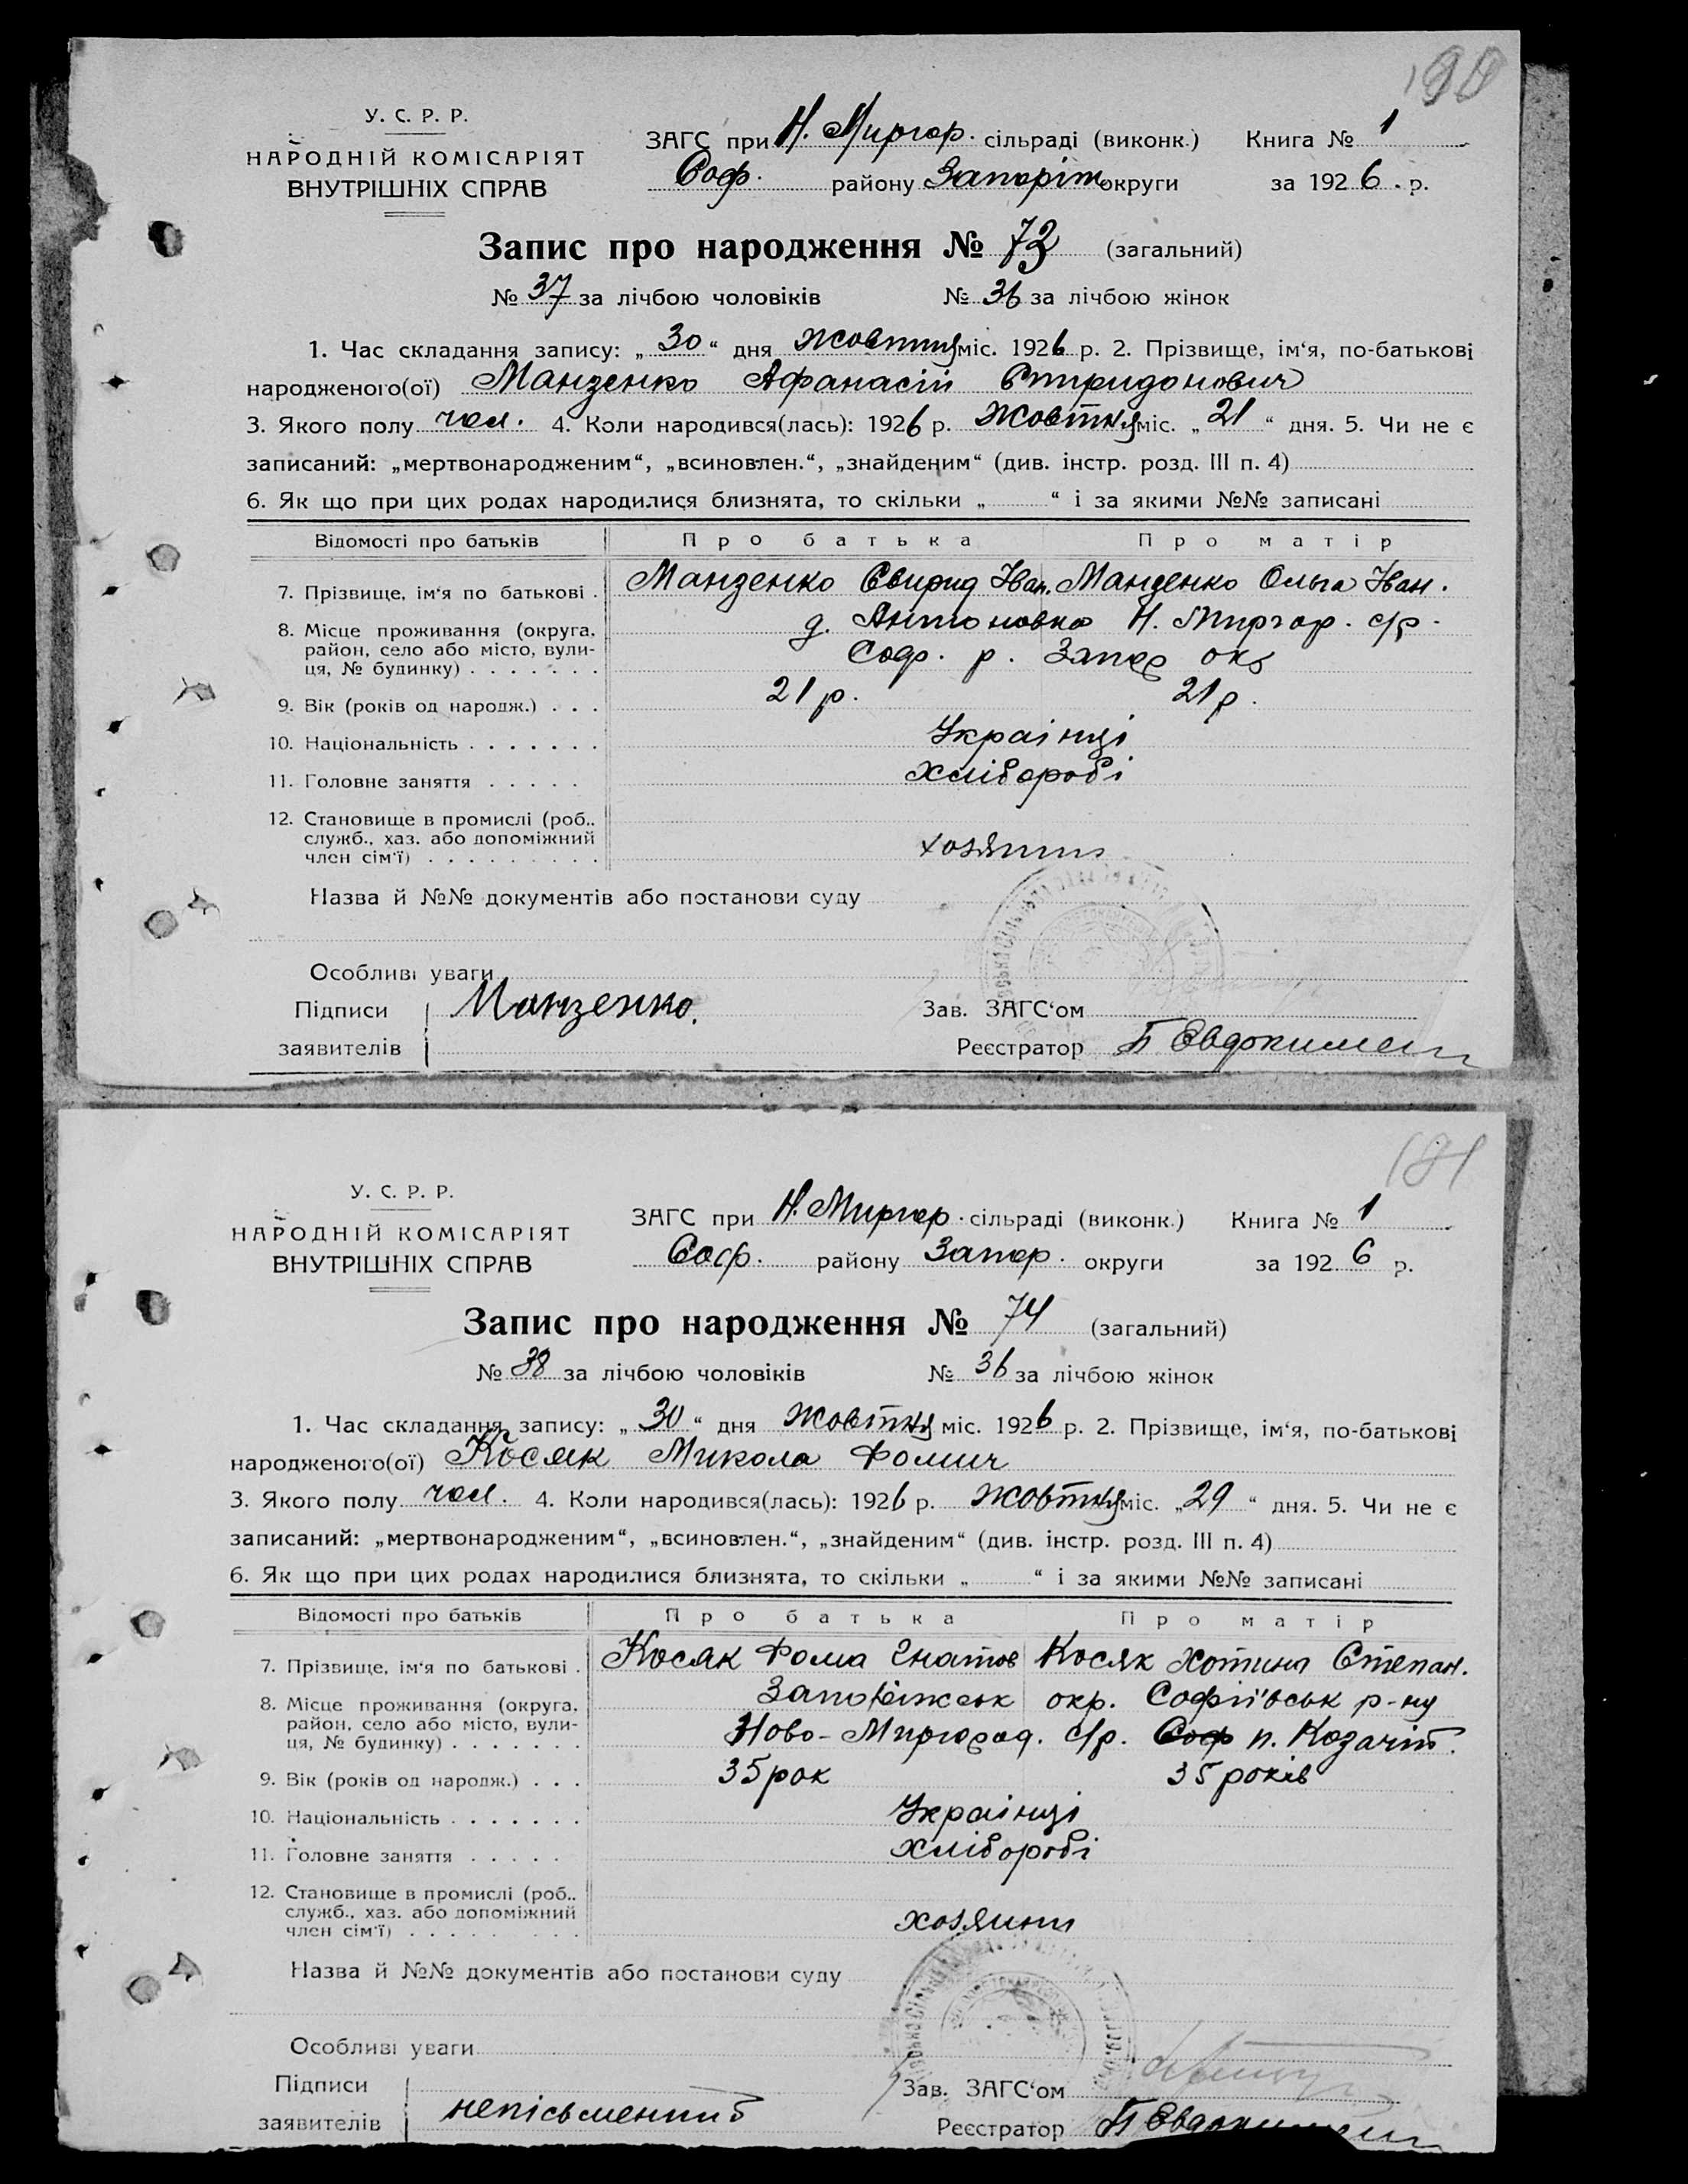 190
У. С. Р. Р.
НАРОДНІЙ КОМІСАРІЯТ
ВНУТРІШНІХ СПРАВ
ЗАГС при Н. Миргор. сільраді (виконк.) Книга № 1
Соф. району Запоріж округи за 1926. р.
Запис про народження № 73 (загальний)
№ 37 за лічбою чоловіків № 36 за лічбою жінок
1. Час складання запису: „30“ дня жовтня міс. 1926 р. 2. Прізвище, ім‘я, по-батькові
народженого(ої) Манзенко Афанасій Спиридонович
3. Якого полу чол. 4. Коли народився(лась): 1926 р. жовтня міс. „21“ дня. 5. Чи не є
записаний: „мертвонародженим“, „всиновлен.“, „знайденим“ (див. інстр. розд. III п. 4)
6. Як що при цих родах народилися близнята, то скільки „ “ і за якими №№ записані
Відомості про батьків Про батька Про матір
7. Прізвище, ім‘я по батькові . Манзенко Свирид Іван. Манзенко Ольга Іван.
8. Місце проживання (округа, район, село або місто, вули-ця, № будинку) . . . . . . .
д. Антоновка Н. Миргор. с/р.
Соф. р. Запор окр
9. Вік (років од народж.) . . . 21 р. 21 р.
10. Національність . . . . . . . Украінці
11. Головне заняття . . . . . хліборобі
12. Становище в промислі (роб., служб., хаз. або допоміжний член сім‘ї) . . . . . . . . .
хозяини
Назва й №№ документів або постанови суду
Особливі уваги
Підписи заявителів Манзенко.
Зав. ЗАГС‘ом
Реєстратор П Евдокимен
181
У. С. Р. Р.
НАРОДНІЙ КОМІСАРІЯТ
ВНУТРІШНІХ СПРАВ
ЗАГС при Н. Миргор. сільраді (виконк.) Книга № 1
Соф. району Запор. округи за 1926 р.
Запис про народження № 74 (загальний)
№ 38 за лічбою чоловіків № 36 за лічбою жінок
1. Час складання запису: „30“ дня жовтня міс. 1926 р. 2. Прізвище, ім‘я, по-батькові
народженого(ої) Косяк Микола Фомич
3. Якого полу чол. 4. Коли народився(лась): 1926 р. жовтня міс. „29“ дня. 5. Чи не є
записаний: „мертвонародженим“, „всиновлен.“, „знайденим“ (див. інстр. розд. III п. 4)
6. Як що при цих родах народилися близнята, то скільки „ “ і за якими №№ записані
Відомості про батьків Про батька Про матір
7. Прізвище, ім‘я по батькові . Косяк Фома Гнатов Косяк Хотина Степан.
8. Місце проживання (округа, район, село або місто, вули-ця, № будинку) . . . . . . .
Запоріжськ окр. Софіївськ р-ну
Ново-Миргород. с/р. Соф п. Козачіт.
9. Вік (років од народж.) . . . 35 рок 35 років
10. Національність . . . . . . . Украінці
11. Головне заняття . . . . . хліборобі
12. Становище в промислі (роб., служб., хаз. або допоміжний член сім‘ї) . . . . . . . . .
хозяини
Назва й №№ документів або постанови суду
Особливі уваги
Підписи заявителів непісьменний
Зав. ЗАГС‘ом
Реєстратор П Евдокимен